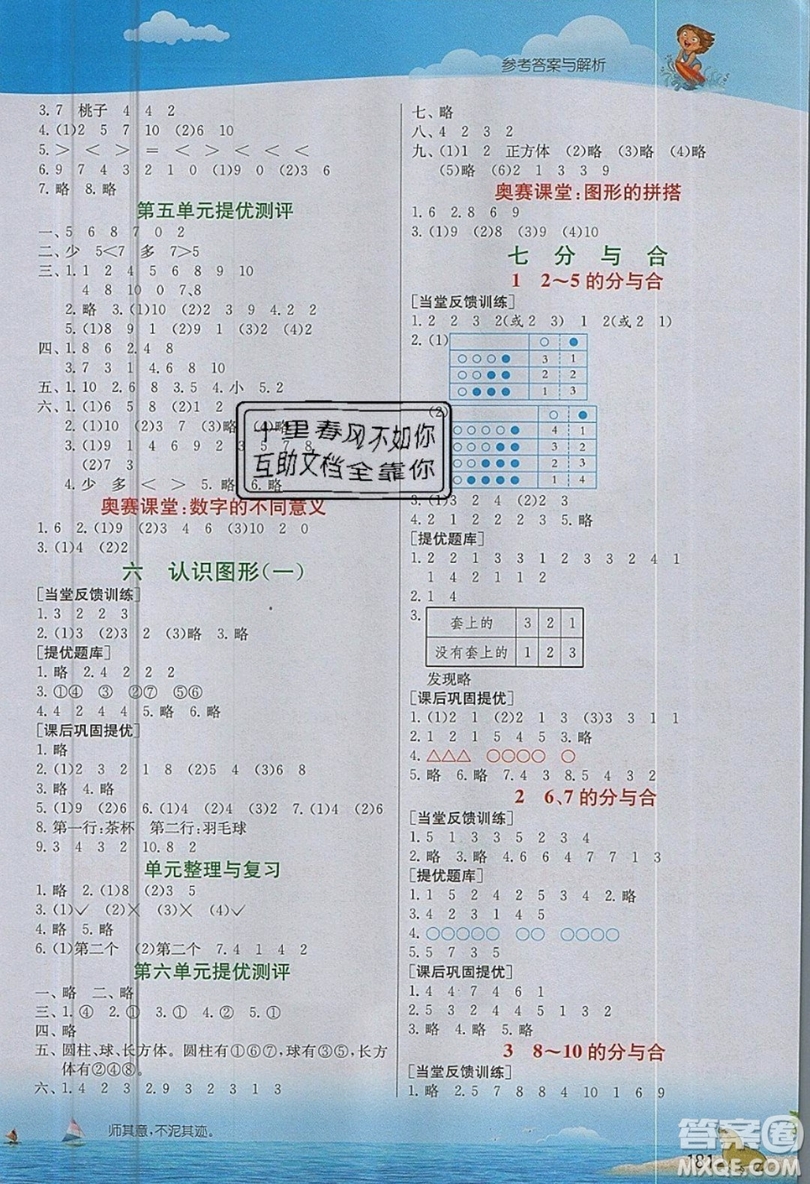 参考答案与解析
3.7 桃子 4 4 2
4.(1)2 5 7 10 (2)6 10
5.> < > = < > > <
6.9 7 4 3 2 1 0 (1)9 (2)3 6
7.略 8.略
第五单元提优测评
一、5 6 8 7 0 2
二、少 5<7 多 7>5
三、1.1 2 3 4 5 6 7 8 9 10
4 8 10 0 7、8
2.略 3.(1)2 (2)2 3 9 4.2 2
5.(1)8 9 1 (2)9 1 (3)9 5
四、1.8 6 2.4 8
3.7 3 1 4.8 10 6 8
五、1.10 2.6 8 3.5 4.小 5.2
六、1.(1)6 5 8 (2)略
2.(1)10 (2)7 (3)6 (4)略
3.(1)9 1 4 6 9 2 3 5 7 8
(2)7 3
4.少 多 < > 5.略 6.略
奥赛课堂:数字的不同意义
1.6 2.(1)9 (2)3 4 6 (3)10 2 9
3.(1)4 (2)2
六 认识图形(一)
[当堂反馈训练]
1.3 2 2 3
2.(1)3 (2)3 2 (3)略 3.略
[提优题库]
1.略 2.4 2 2 2
3.①④ ③ ②⑦ ⑤⑥
4.4 2 4 4 5.略 6.略
[课后巩固提优]
1.略
2.(1)2 3 2 1 (2)4 3 8 8
3.略 4.略
5.(1)2 (2)3 6.(1)4 (2)4 7.(1)4 (2)6
8.第一行:茶杯 第二行:羽毛球
9.3 4 3 2 10.8 2
单元整理与复习
1.略 2.(1)8 (2)3 5
3.(1)✓ (2)× (3)× (4)✓
4.略 5.略
6.(1)第二个 (2)第二个 7.4 1 4 2
第六单元提优测评
一、略 二、略
三、1.④ 2.① 3.② 4.② 5.①
四、略
五、圆柱、球、长方体。圆柱有①⑥⑦,球有③⑤,长方
体有②④⑧。
六、1.4 2 3 2.9 3 3 2 3.1 2 2
七、略
八、4 2 3 2
九、(1)1 2 正方体 (2)略 (3)略 (4)略
(5)略 (6)2 1 3 3 9
奥赛课堂:图形的拼搭
1.6 2.8 6 9
3.(1)9 (2)10 (3)8
七 分与合
1 2~5的分与合
[当堂反馈训练]
1.2 2 3 2(或2 3) 1 2(或2 1)
2.(1) ○ ●
○○○● 3 1
○○●● 2 2
○●●● 1 3
(2) ○ ●
○○○○● 4 1
○○○●● 3 2
○○●●● 2 3
○●●●● 1 4
3.(1)3 2 4 (2)2 3
4.2 1 2 2 2 2 3 5.略
[提优题库]
1.2 2 1 3 3 1 2 3 3 2 4 1
1 4 2 1 1 2
2.1 3 1 3
3. 套上的 3 2 1
没有套上的 1 2 3
发现略
[课后巩固提优]
1.(1)2 1 (2)2 1 3 (3)1 2 3 4
2.1 2 1 5 4 5 3.略
4.△△△ ○○○○ ○
5.略 6.略 7.4 3 8.5 4 3 2
2 6、7的分与合
[当堂反馈训练]
1.5 1 3 3 5 2 3 4
[提优题库]
4.○○○○○ ○○ ○○○ ○○○○
5.5 7 3 5
[课后巩固提优]
1.4 4 7 4 6 1
3.略 4.略 5.略
3 8~10的分与合
[当堂反馈训练]
1.略 2.5 7 8 8 4 10 1 6 9 9
师其意,不泥其迹。
181
十里春风不如你
互助文档全靠你
答案圈
MXQE.COM